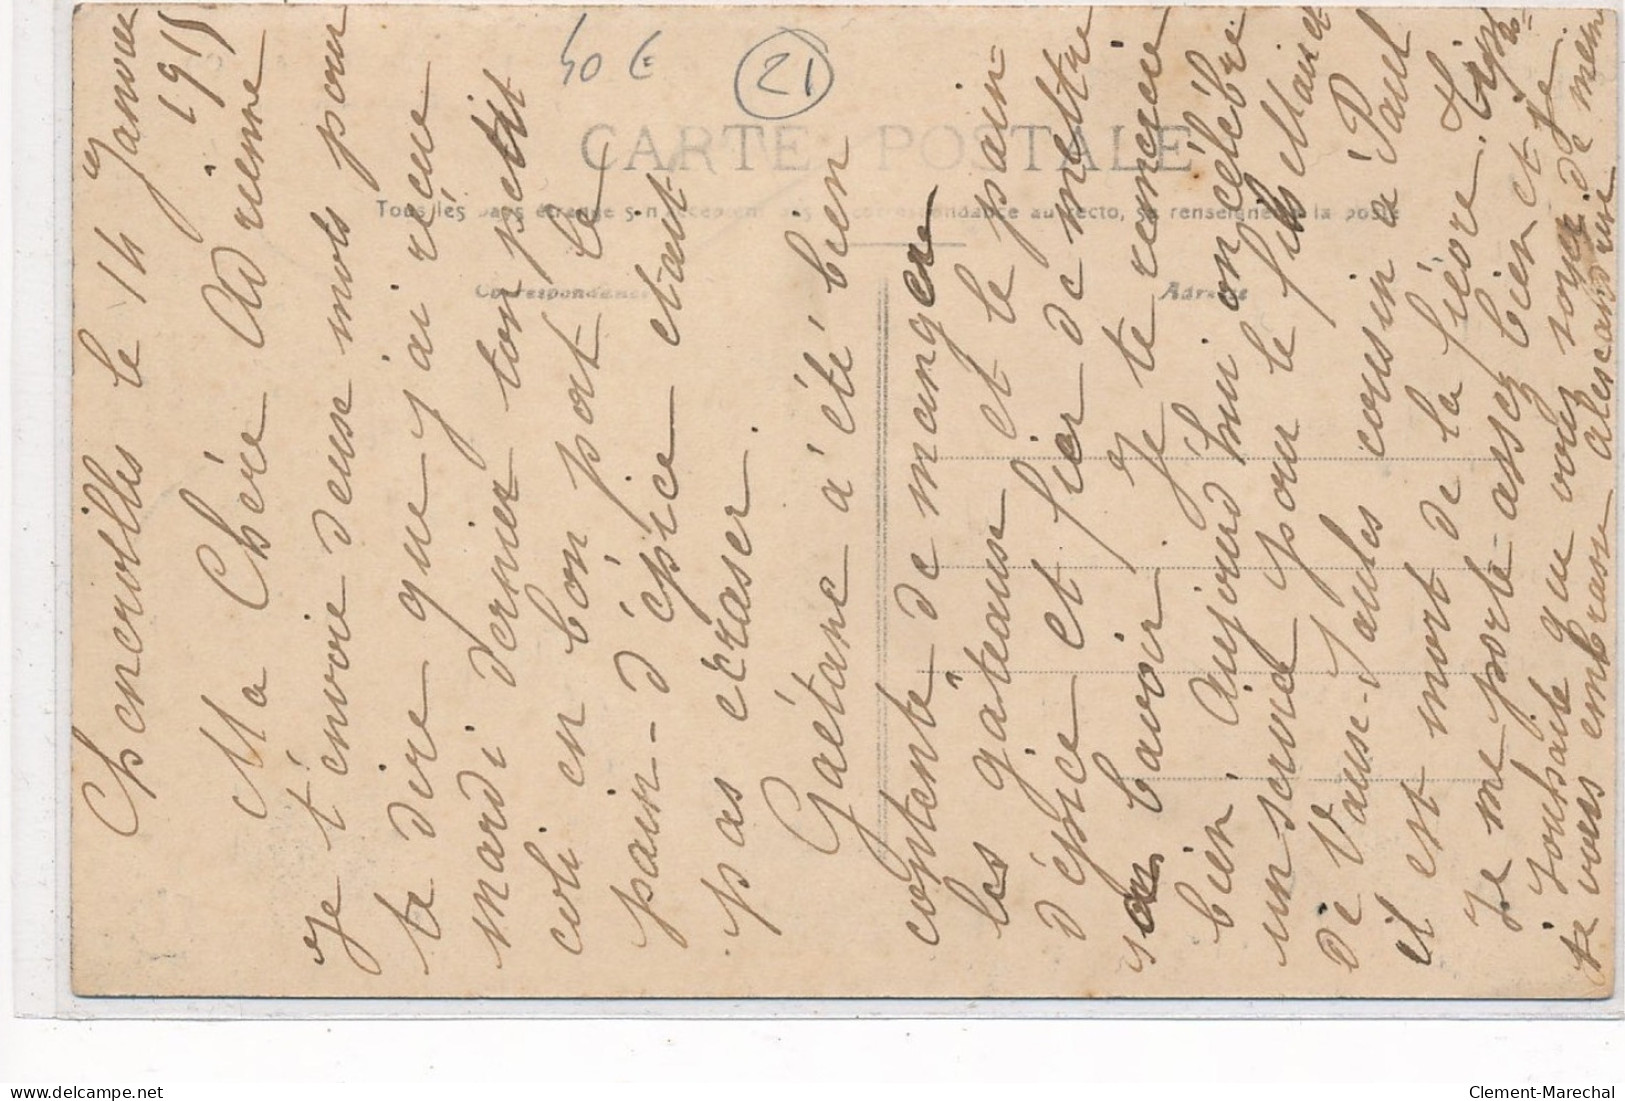 40 €
21
CARTE POSTALE
Tous les pays étrangers n'acceptent pas la correspondance au recto, se renseigner à la poste
Correspondance
Adresse
Chenerolles le 14 Janvier
1911
Ma Chère Adrienne
Je t'envoie deux mots pour
te dire que j'ai réçue
mardi dernier ton petit
coli en bon port le
pain-d'épice etant
pas ecraser.
Gaétane à été bien
contente de manger
les gâteause et le pain
d'épice et fier de mettre
son bavoir. Je te remercie
bien. Aujourd'hui on célèbre
un service pour le fils
de Vause-Saules cousin à Paul
il est mort de la fièvre
Je me porte assez bien et je
souhaite que vous soyez de mem
je vous embrasse alescandrine
Clement-Marechal